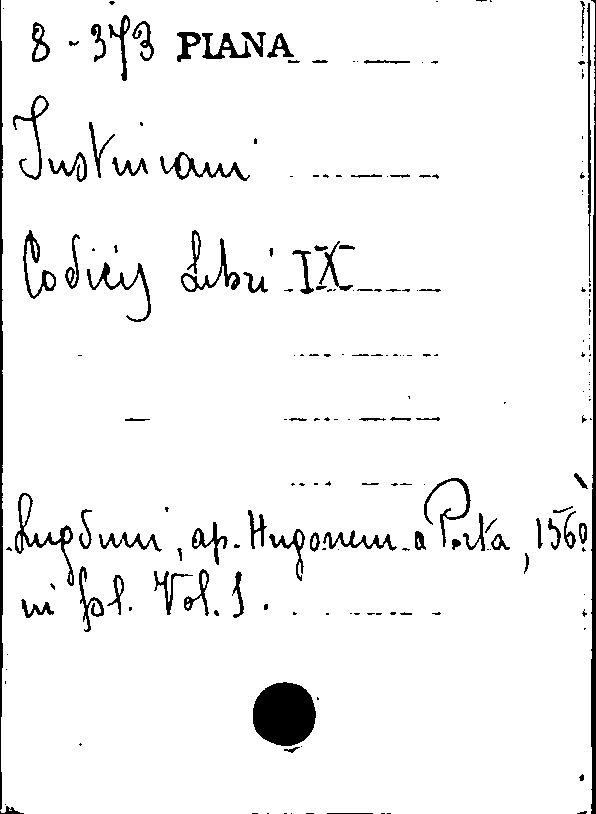 8-373 PIANA
Justiniani
Codicis Libri IX
Lugduni, ap. Hugonem a Porta, 1560
in fol. Vol. 1.